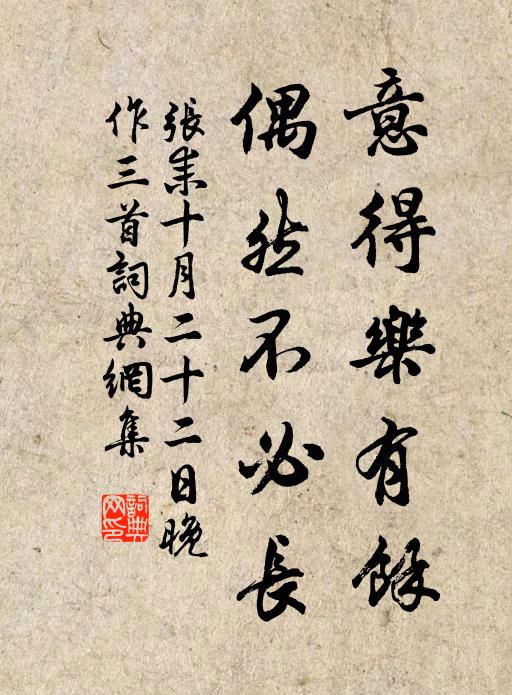 意得樂有餘
偶然不必長
張耒十月二十二日晚
作三首詞典網集
詞典
網印